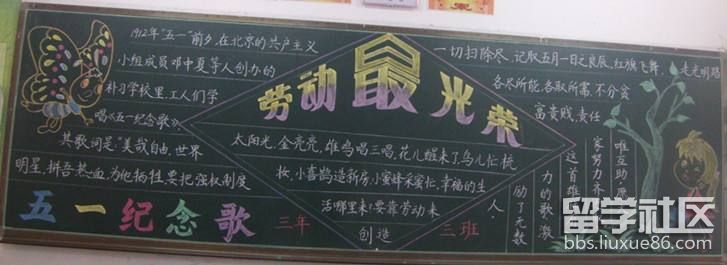 1912年"五一"前夕,在北京的共产主义
小组成员邓中夏等人创办的
补习学校里,工人们学
唱《五一纪念歌》。
其歌词是"美哉自由,世界
明星,拼吾热血,为他牺牲,要把强权制度
五一纪念歌
劳动最光荣
太阳光,金亮亮,雄鸡唱三唱,花儿醒来了,鸟儿忙梳
妆,小喜鹊造新房,小蜜蜂采蜜忙,幸福的生
活哪里来?要靠劳动来
创造
三年 三班
一切扫除尽,记取五月一日之良辰,红旗飞舞,走光明路
各尽所能,各取所需,不分贫
富贵贱,责任
唯互助愿
家努力齐
这首雄
力的歌激
励了无数
人
留学社区
bbs.liuxue86.com